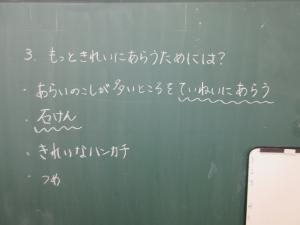 3. もっときれいにあらうためには?
・あらいのこしが多いところをていねいにあらう
・石けん
・きれいなハンカチ
・つめ